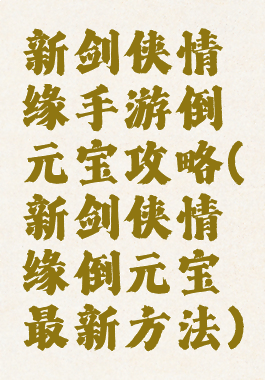 新剑侠情
缘手游倒
元宝攻略(
新剑侠情
缘倒元宝
最新方法)